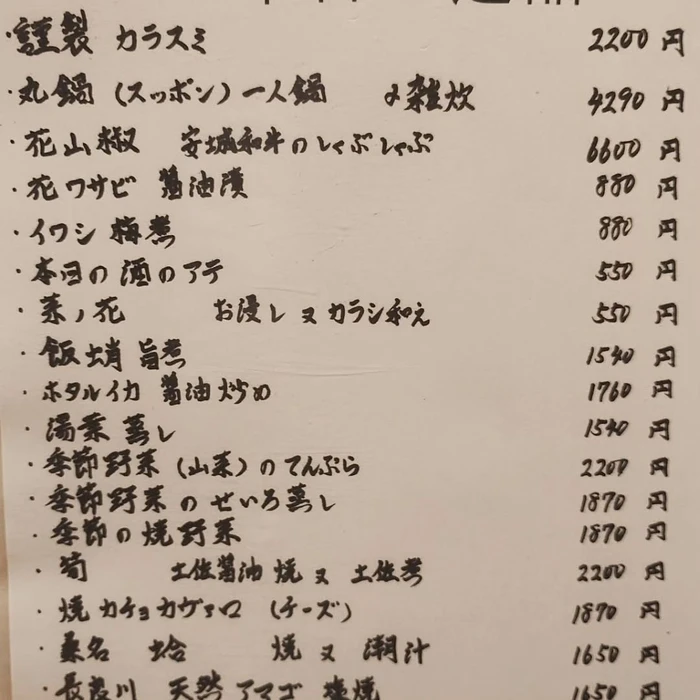 ・謹製 カラスミ 2200円
・丸鍋(スッポン)一人鍋 雑炊 4290円
・花山椒 安城和牛のしゃぶしゃぶ 6600円
・花ワサビ 醤油漬 880円
・イワシ 梅煮 880円
・本日の酒のアテ 550円
・菜ノ花 お浸し 又 カラシ和え 550円
・飯蛸 旨煮 1540円
・ホタルイカ 醤油炒め 1760円
・湯葉蒸し 1540円
・季節野菜(山菜)のてんぷら 2200円
・季節野菜のせいろ蒸し 1870円
・季節の焼野菜 1870円
・筍 土佐醤油焼 又 土佐煮 2200円
・焼カチョカヴァロ (チーズ) 1870円
・桑名 蛤 焼 又 潮汁 1650円
・長良川 天然アマゴ 塩焼 1650円